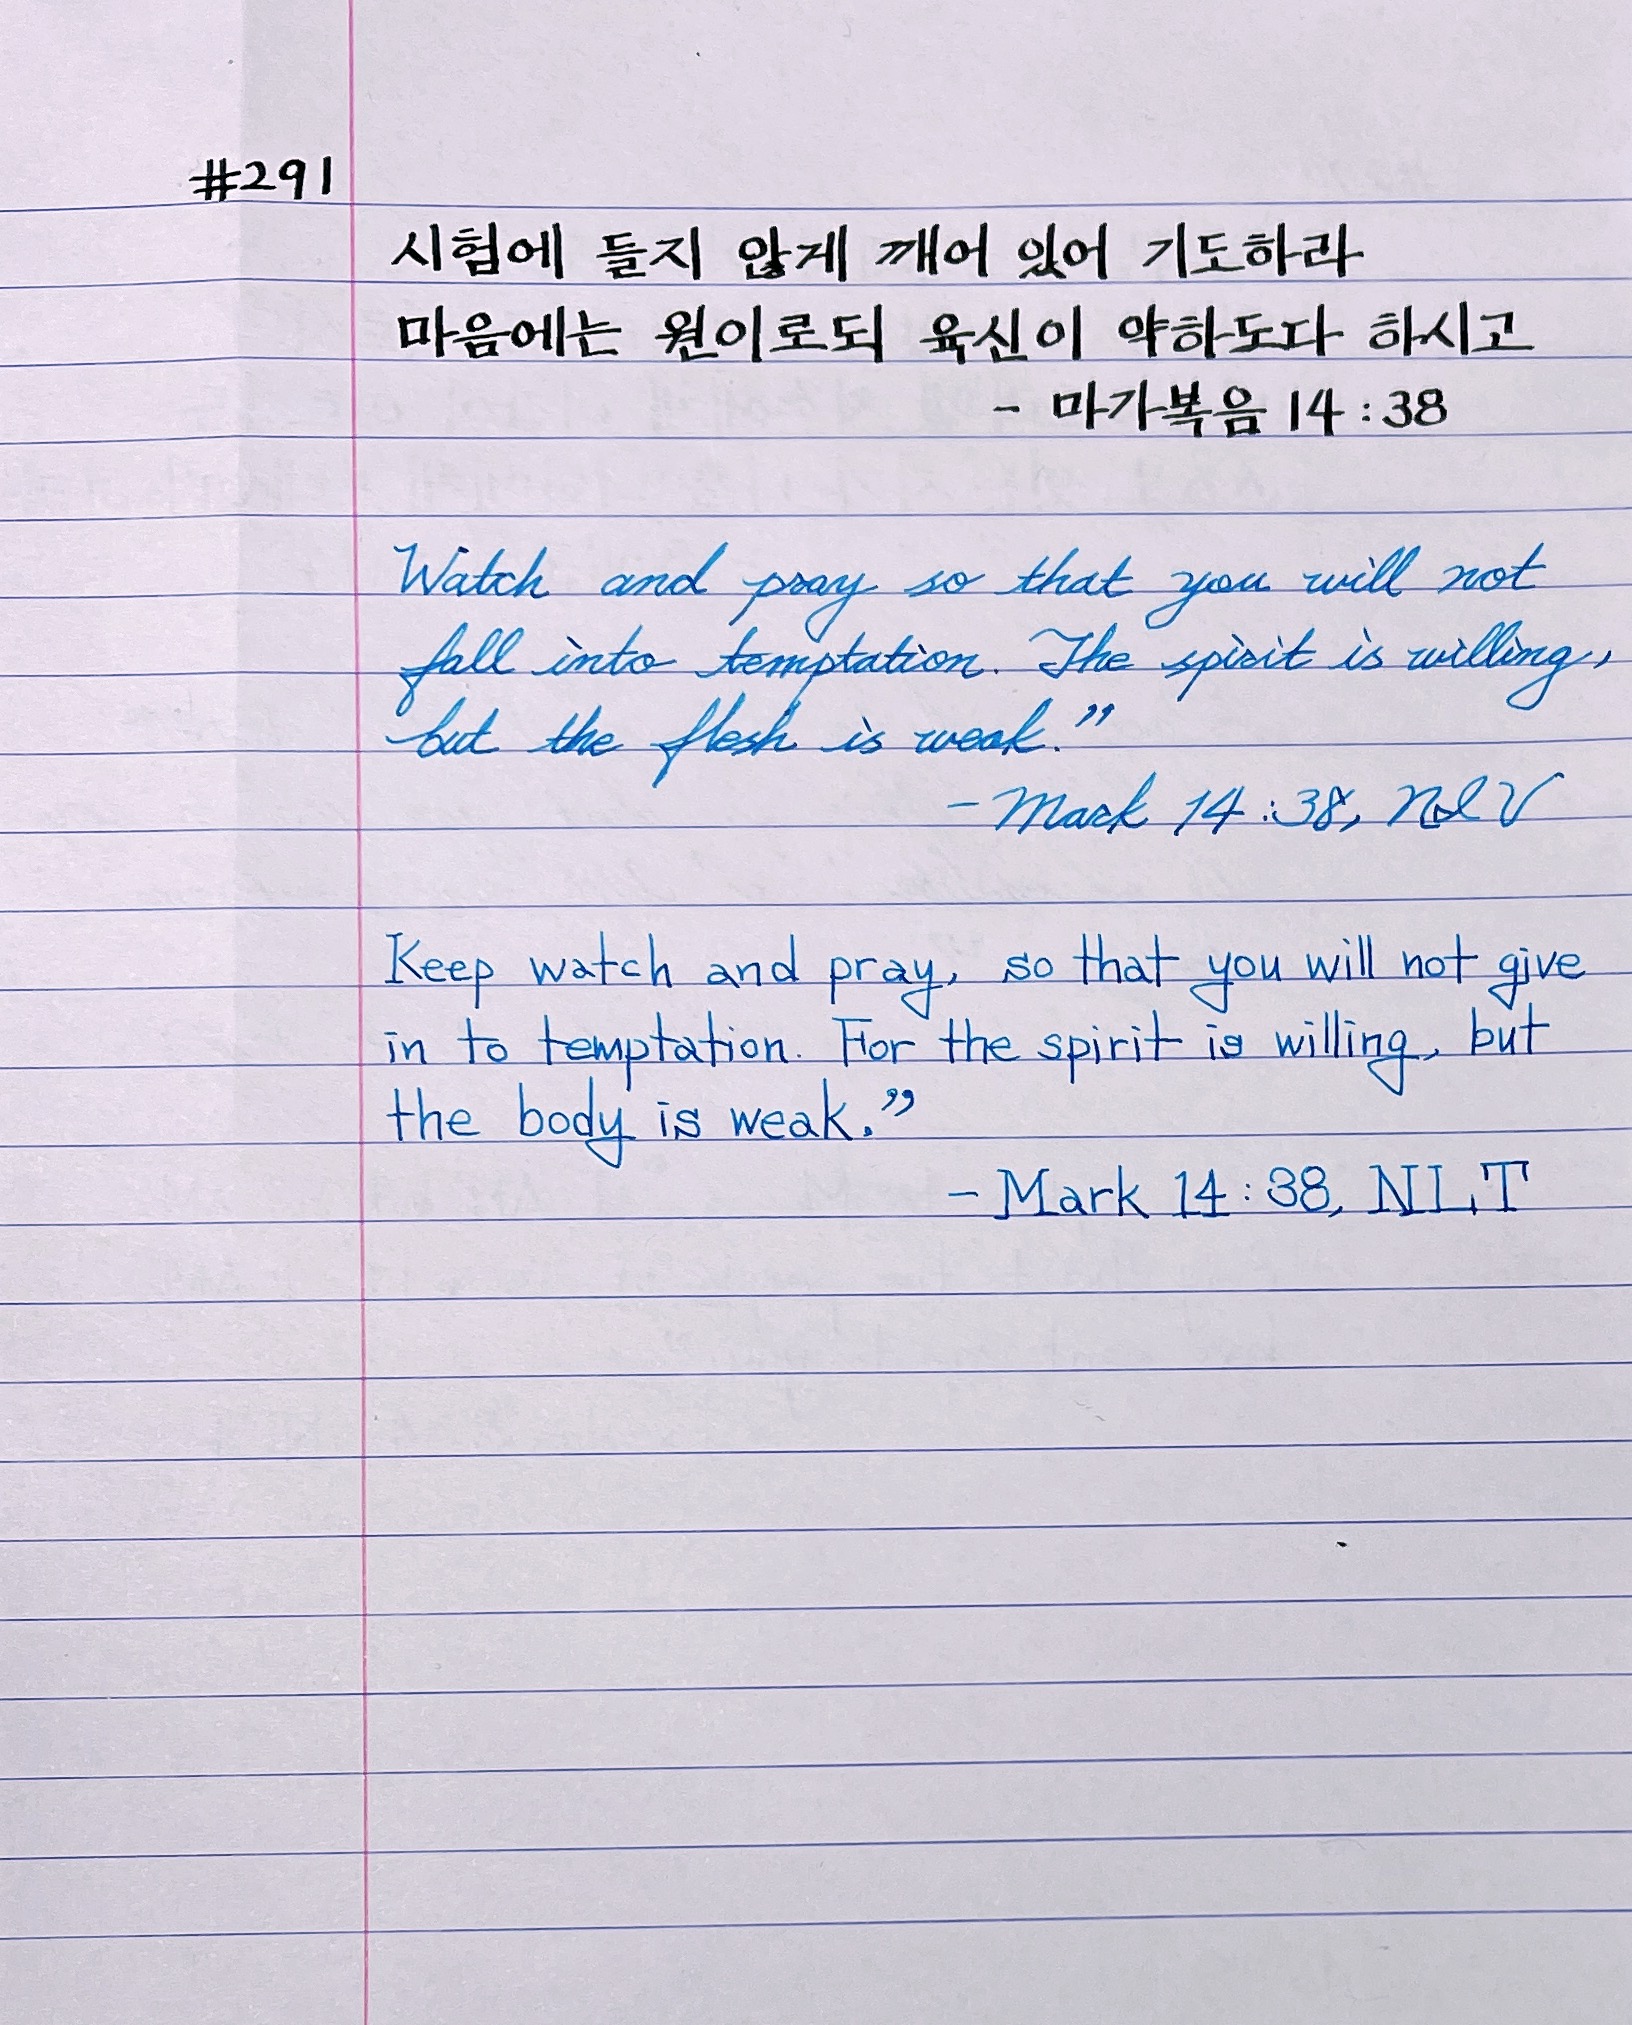 #291
시험에 들지 않게 깨어 있어 기도하라
마음에는 원이로되 육신이 약하도다 하시고
- 마가복음 14:38
Watch and pray so that you will not
fall into temptation. The spirit is willing,
but the flesh is weak.”
- Mark 14:38, NIV
Keep watch and pray, so that you will not give
in to temptation. For the spirit is willing, but
the body is weak.”
- Mark 14:38, NLT